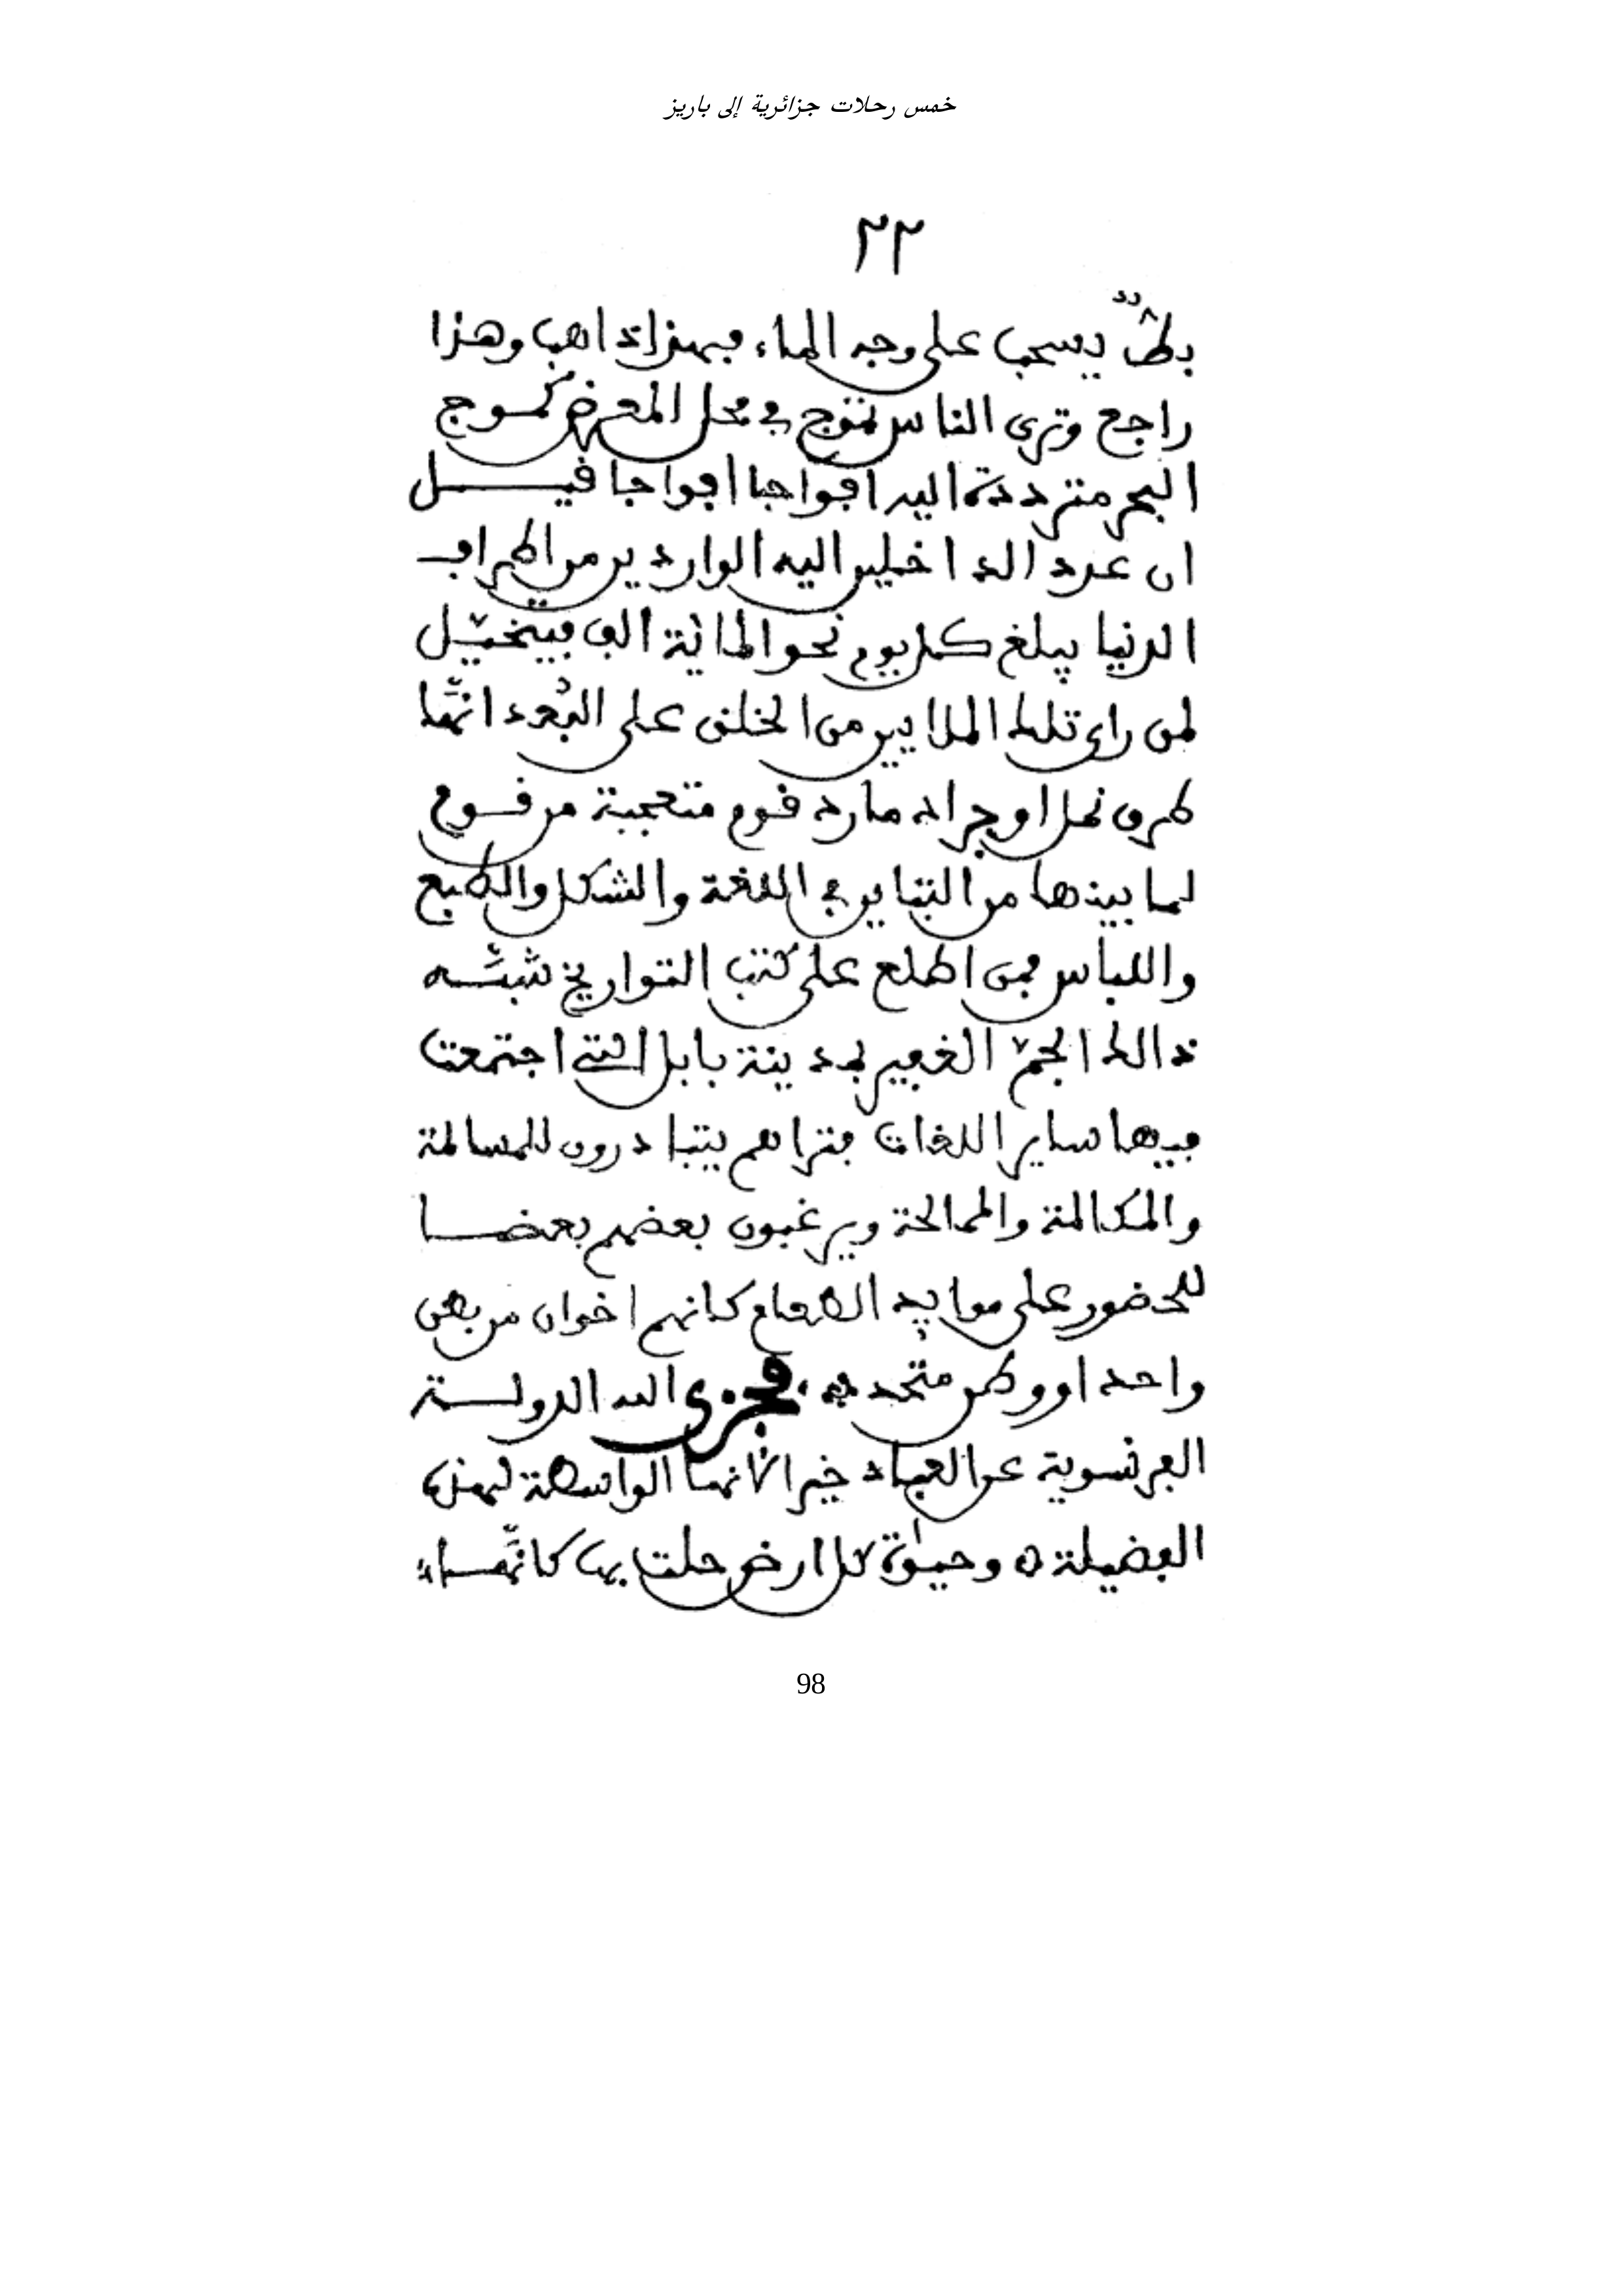 خمس رحلات جزائرية إلى باريز
٢٢
بطّ يسحب على وجه الماء فهذا ذاهب وهذا
راجع وترى الناس تموج في محل المعرض كموج
البحر مترددة اليه افواجا افواجا فيل
ان عدد الداخلين اليه الواردين من اطراف
الدنيا يبلغ كل يوم نحو المائة الف فيتخيّل
لمن راى تلك الملايين من الخلق على البُعد انّها
طرق نمل او جراد مارد قوم متعجبة مرقوم
لما بينها من التباين في اللغة والشكل والطبع
واللباس فمن اطلع على كتب التواريخ شبّه
ذالك الجمّ الغفير بمدينة بابل التي اجتمعت
فيها ساير اللغات فتراهم يتبادرون للمسالمة
والمكالمة والممالحة ويرغبون بعضهم بعضا
للحضور على موايد الطعام كانهم اخوان من بطن
واحد او وطن متحد، فجزى الله الدولة
الفرنسوية عن العباد خيرا لانها الواسطة لهذه
الفضيلة ه وحيوة كل ارض حلت بها كانّها
98